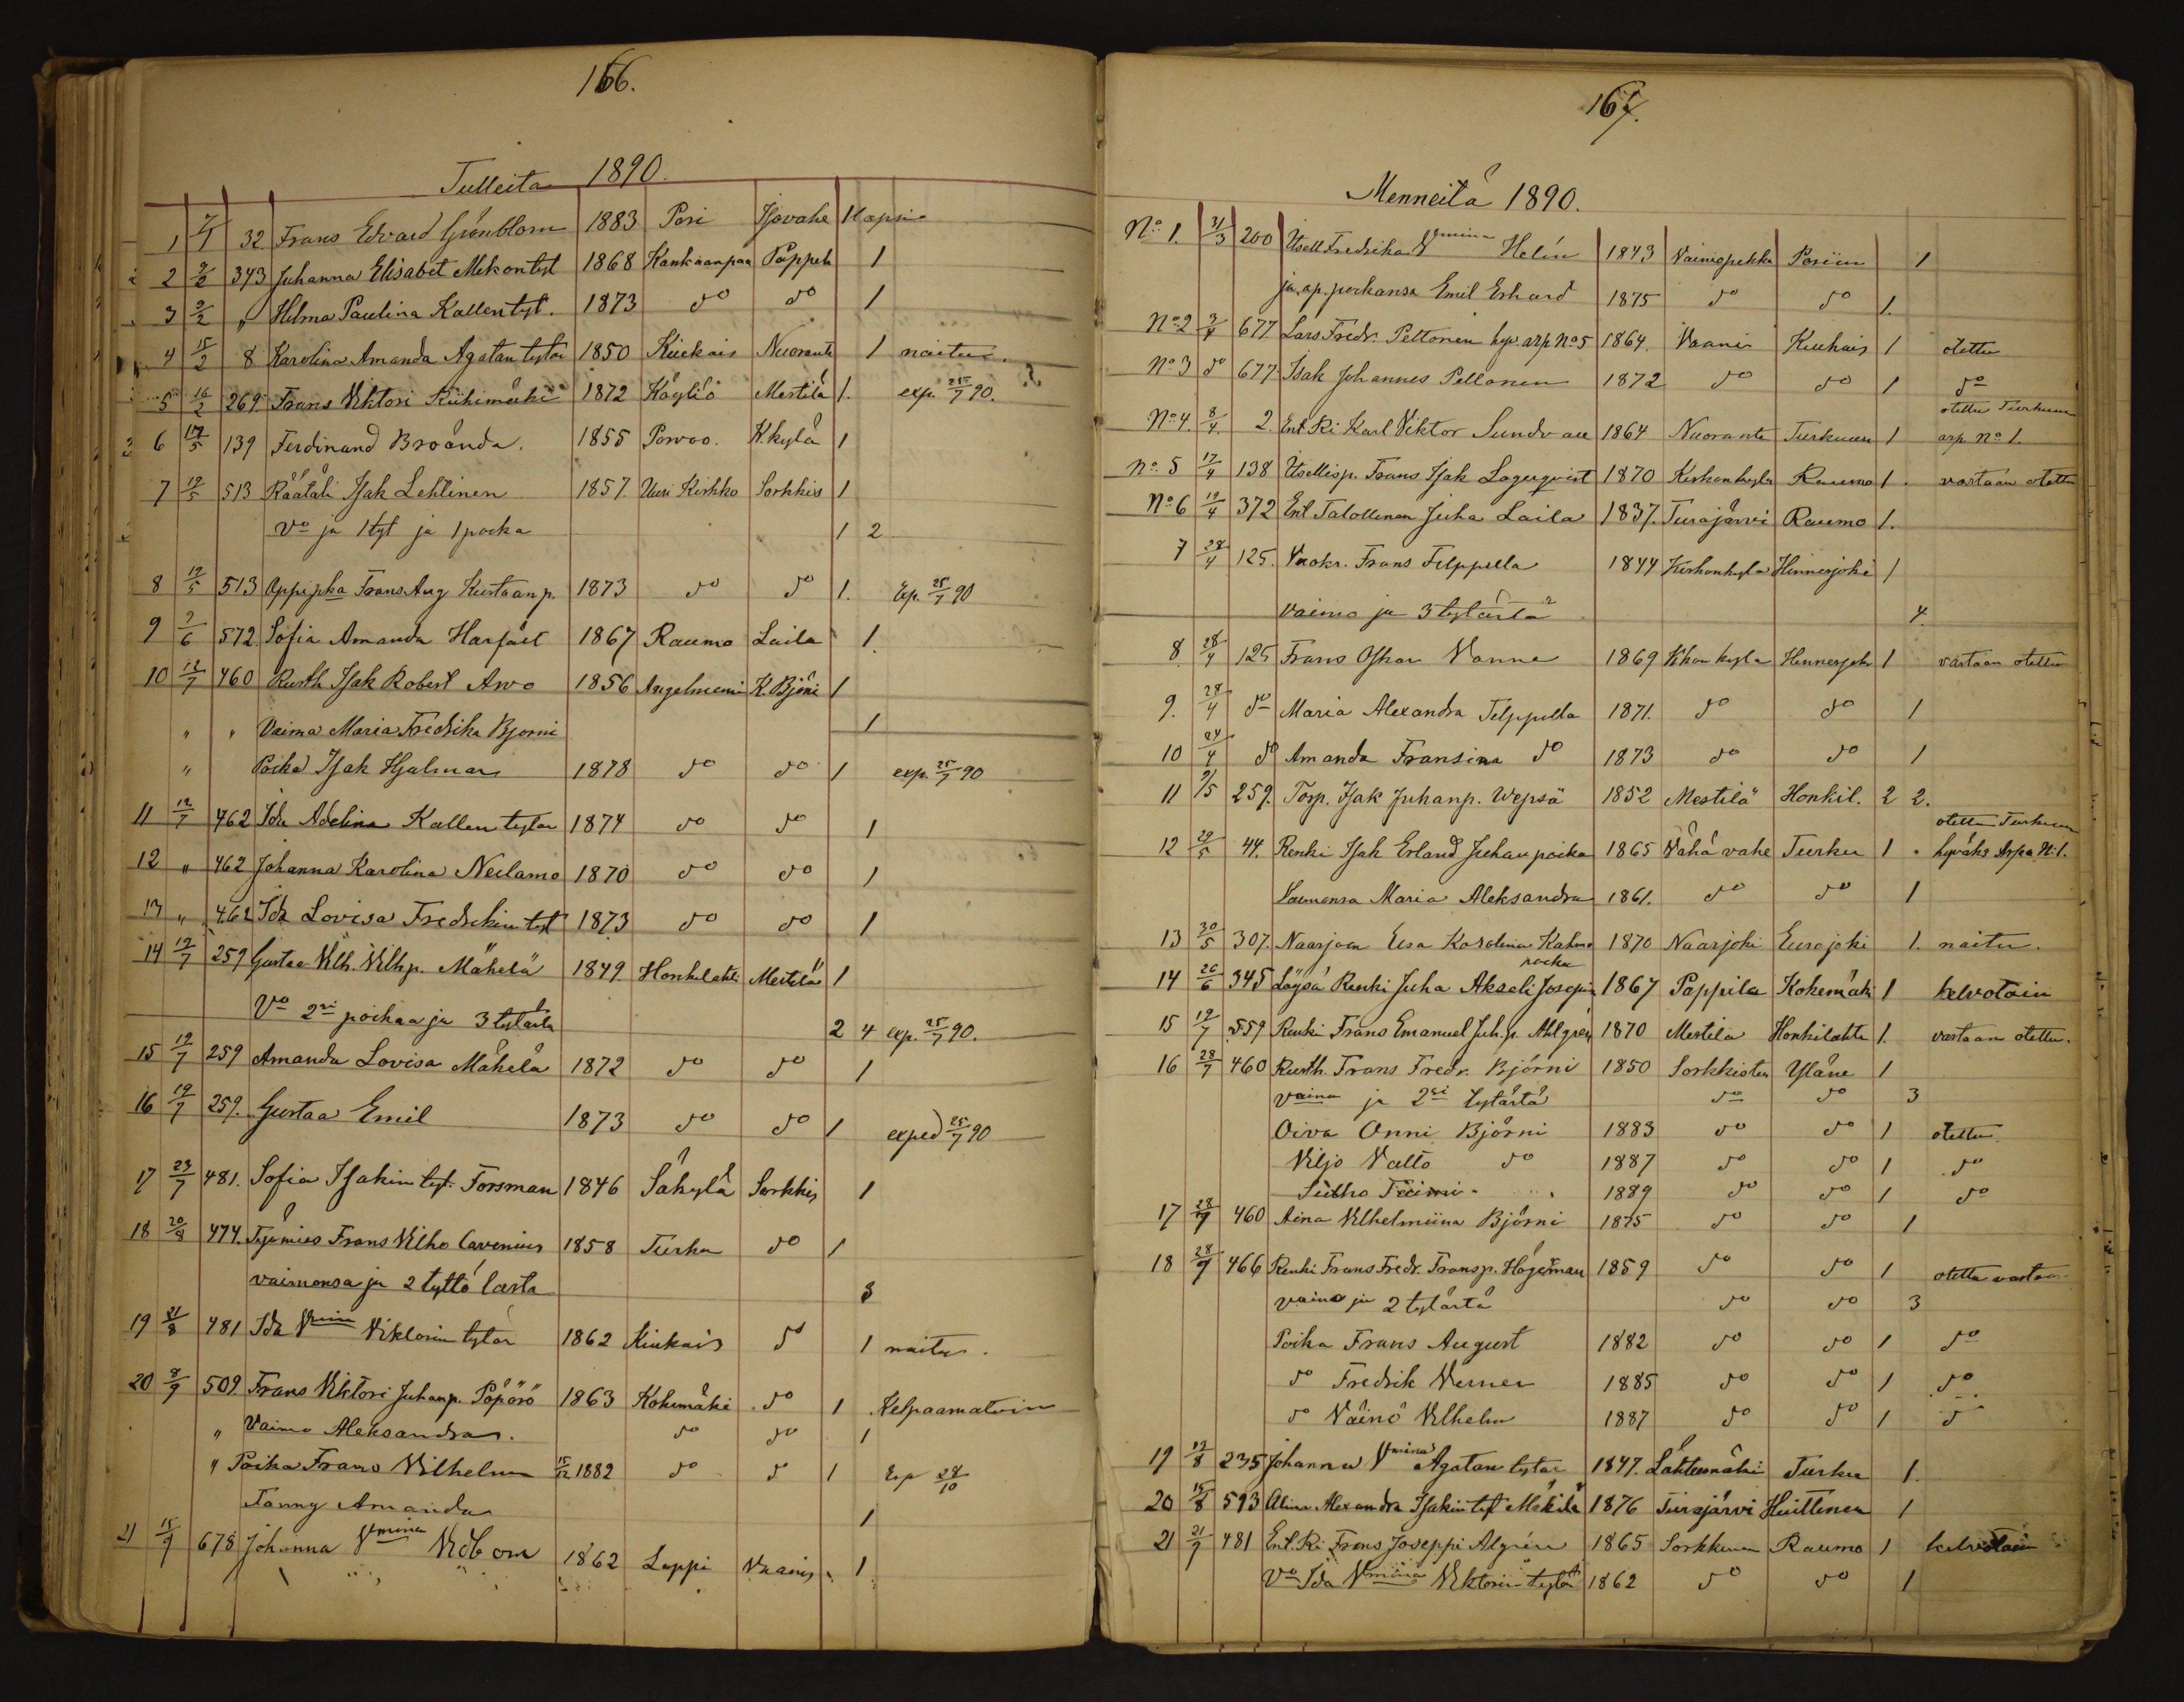 166.
Tulleita 1890.
1 7/1 32 Frans Edvard Grönblom 1883 Pori Isovahe 1 lapsi
2 9/2 343 Juhanna Elisabet Mikontyt 1868 Kankaanpää Pappila 1
3 9/2 " Helma Paulina Kallentyt. 1873 do do 1
4 15/2 8 Karolina Amanda Agatan tytär 1850 Kiukais Nuoranti 1 naitu.
5 16/2 269. Frans Viktori Riihimäki 1872 Köyliö Mestilä 1. exp. 25/7 90.
6 17/5 139 Ferdinand Broända. 1855 Porvoo. K.kylä 1
7 19/5 513 Räätäli Isak Lehtinen 1857 Uusi Kirkko Sorkkis 1
Vo ja 1 tyt ja 1 poika 1 2
8 19/5 513 Oppipka Frans Aug Kustaanp. 1873 do do 1. Exp. 25/7 90
9 7/6 572. Sofia Amanda Harfält 1867 Raumo Laila 1.
10 12/7 460 Rusth Isak Robert Arvo 1856 Angelniemi K. Björni 1
" " Vaimo Maria Fredrika Bjorni 1
" Poika Isak Hjalmar 1878 do do 1 exp. 25/7 90
11 12/7 462 Ida Adelina Kallen tytär 1874 do do 1
12 " 462 Johanna Karolina Neulamo 1870 do do 1
13 " 462 Ida Lovisa Fredrikin tyt 1873 do do 1
14 19/7 259 Gustaa Vilh. Vilhp. Mähelä 1849. Honkilahti Mestilä 1
Vo 2si poikaa ja 3 tytärtä 2 4 exp. 25/7 90.
15 19/7 259 Amanda Lovisa Mähelä 1872 do do 1
16 19/7 259. Gustaa Emil 1873 do do 1 exped 25/7 90
17 23/7 481. Sofia Isakin tyt. Forsman 1846 Säkylä Sorkkis 1
18 20/8 474. Työmies Frans Vilho Cavenius 1858 Turku do 1
vaimonsa ja 2 tyttö lasta 3
19 21/8 481 Ida Vmiin Viktorin tytär 1862 Kiukais do 1 naitu.
20 8/9 509. Frans Viktori Juhanp. Pöpörö 1863 Kokemäki do 1 Kelpaamatoin
" Vaimo Aleksandra. do do 1
" Poika Frans Vilhelm 15/12 1882 do do 1 Exp 28/10
Fanny Amanda 1
21 15/9 678 Johanna Vmina 1862 Lappi Vaanis 1
167.
Menneitä 1890.
No 1. 31/3 200 Itsell Fredrika Vmina Helin 1843 Vainiopekka Poriin 1
ja ap. poikansa Emil Erhard 1875 do do 1.
No 2 3/4 677. Lars Fredr. Peltonen hyv. arp No 5 1864. Vaani Kiukais 1 otettu
No 3 do 677 Isak Johannes Peltonen 1872 do do 1 do
No 4. 8/4. 2. Ent Ri Karl Viktor Sundvall 1864 Nuoranti Turkuun 1 otettu Turkuun arp. No 1.
No 5 17/4 138 Itsellisp. Frans Isak Lagerqvist 1870 Kirkonkyla Raumo 1. vastaan otettu
No 6 19/4 372 Ent Talollinen Juha Laila 1837. Turajärvi Raumo 1.
7 28/4 125. Vuokr. Frans Filppulla 1844 Kirkonkyla Hinnerjoki 1
vaimo ja 3 tytärtä 4.
8. 28/4 125 Frans Oskar Vanne 1869 Kkon kyla Hinnerjok 1 vastaan otettu
9. 28/4 do Maria Alexandra Felppulla 1871. do do 1
10 24/4 do Amanda Fransina do 1873 do do 1
11 9/5 259. Torp. Isak Juhanp. Wepsä 1852 Mestilä Honkil. 2 2.
12 29/5 44. Renki Isak Erland Juhanpoika 1865 Vähä vahe Turku 1. otettu Turkuun hyväks Arpa N:1.
Vaimonsa Maria Aleksandra 1861. do do 1
13 30/5 307. Naarjoen Eva Karolina Kahma 1870 Naarjoki Eurajoki 1. naitu.
14 26/6 345 Löysä Renki Juha Akseli Josepin poika 1867 Pappila Kokemäki 1 kelvotoin
15 19/7 559 Renki Frans Emanuel Juh.p. Ahlgren 1870 Mestilä Honkilahti 1. vastaan otettu.
16 28/7 460 Rusth. Frans Fredr. Björni 1850 Sorkkisten Yläne 1
vaimo ja 2si tytärtä do do 3
Oiva Onni Björni 1883 do do 1 otettu
Viljo Valto do 1887 do do 1 do
Sulho Toimi 1889 do do 1 do
17 28/7 460 Aina Vilhelmiina Björni 1875 do do 1
18 28/7 466 Renki Frans Fredr. Fransp. Hägerman 1859 do do 1 otettu vastaan
vaimo ja 2 tytärtä do do 3
Poika Frans August 1882 do do 1 do
do Fredrik Verner 1885 do do 1 do
do Väinö Vilhelm 1887 do do 1 do
19 12/8 235 Johanna Vmina Agatan tytär 1847. Lähteenmäki Turku 1.
20 15/8 593 Alina Alexandra Isakintyt Mäkilä 1876 Turajärvi Huittinen 1
21 21/9 481 Ent. Ri Frans Joseppi Algrén 1865 Sorkkinen Raumo 1 kelvotoin
Vo Ida Vmina Viktorin tytär 1862 do do 1